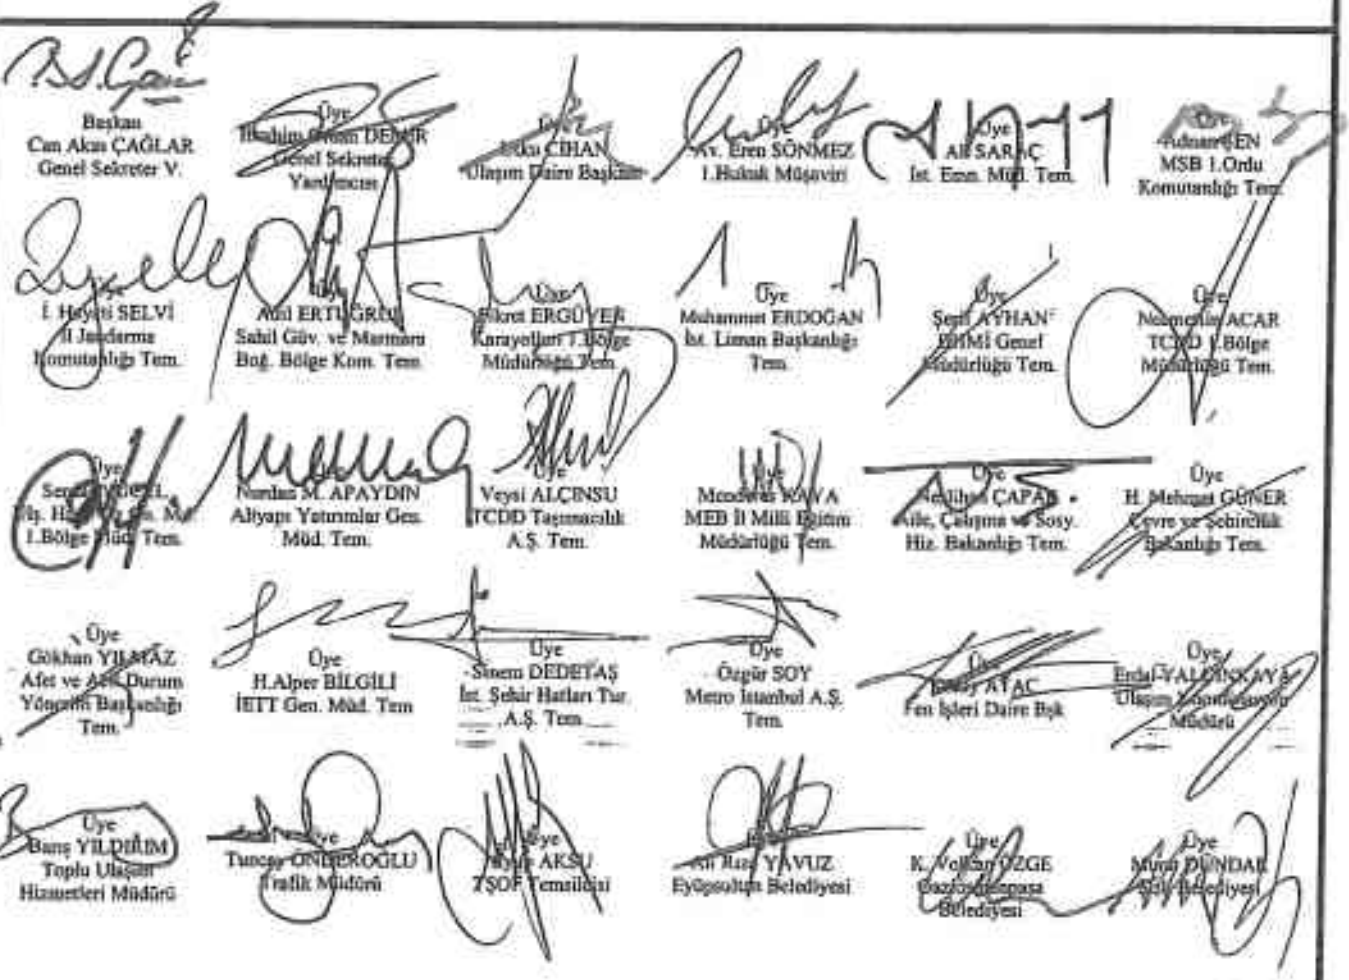 Başkan
Can Akın ÇAĞLAR
Genel Sekreter V.
Üye
Genel Sekreter
Yardımcısı
Üye
Utku CİHAN
Ulaşım Daire Başkanı
Üye
Av. Eren SÖNMEZ
1.Hukuk Müşaviri
Üye
Ali SARAÇ
İst. Emn. Müd. Tem.
Üye
Adnan ŞEN
MSB 1.Ordu
Komutanlığı Tem.
İ. Hayati SELVİ
İl Jandarma
Komutanlığı Tem.
ERTUĞRUL
Sahil Güv. ve Marmara
Boğ. Bölge Kom. Tem.
Üye
Fikret ERGÜVEN
Karayolları 1.Bölge
Müdürlüğü Tem.
Üye
Muhammet ERDOĞAN
İst. Liman Başkanlığı
Tem.
Üye
AYHAN
DHMİ Genel
Müdürlüğü Tem.
Üye
Necmettin ACAR
TCDD 1.Bölge
Müdürlüğü Tem.
Üye
1.Bölge Müd. Tem.
Nurdan M. APAYDIN
Altyapı Yatırımlar Gen.
Müd. Tem.
Üye
Veysi ALÇINSU
TCDD Taşımacılık
A.Ş. Tem.
Üye
Menderes KAYA
MEB İl Milli Eğitim
Müdürlüğü Tem.
Üye
Neslihan ÇAPAR
Aile, Çalışma ve Sosy.
Hiz. Bakanlığı Tem.
Üye
H. Mehmet GÜNER
Çevre ve Şehircilik
Bakanlığı Tem.
Üye
Gökhan YILMAZ
Afet ve Acil Durum
Yönetim Başkanlığı
Tem.
Üye
H.Alper BİLGİLİ
İETT Gen. Müd. Tem
Üye
Sinem DEDETAŞ
İst. Şehir Hatları Tur.
A.Ş. Tem
Üye
Özgür SOY
Metro İstanbul A.Ş.
Tem.
Üye
ATAÇ
Fen İşleri Daire Bşk
Üye
Erdal YALÇINKAYA
Ulaşım Koordinasyon
Müdürü
Üye
Barış YILDIRIM
Toplu Ulaşım
Hizmetleri Müdürü
Üye
Tuncay ÖNDEROĞLU
Trafik Müdürü
Üye
AKSU
TŞOF Temsilcisi
Ali Rıza YAVUZ
Eyüpsultan Belediyesi
Üye
K. Volkan ÖZGE
Gaziosmanpaşa
Belediyesi
Üye
Murat DÜNDAR
Şişli Belediyesi